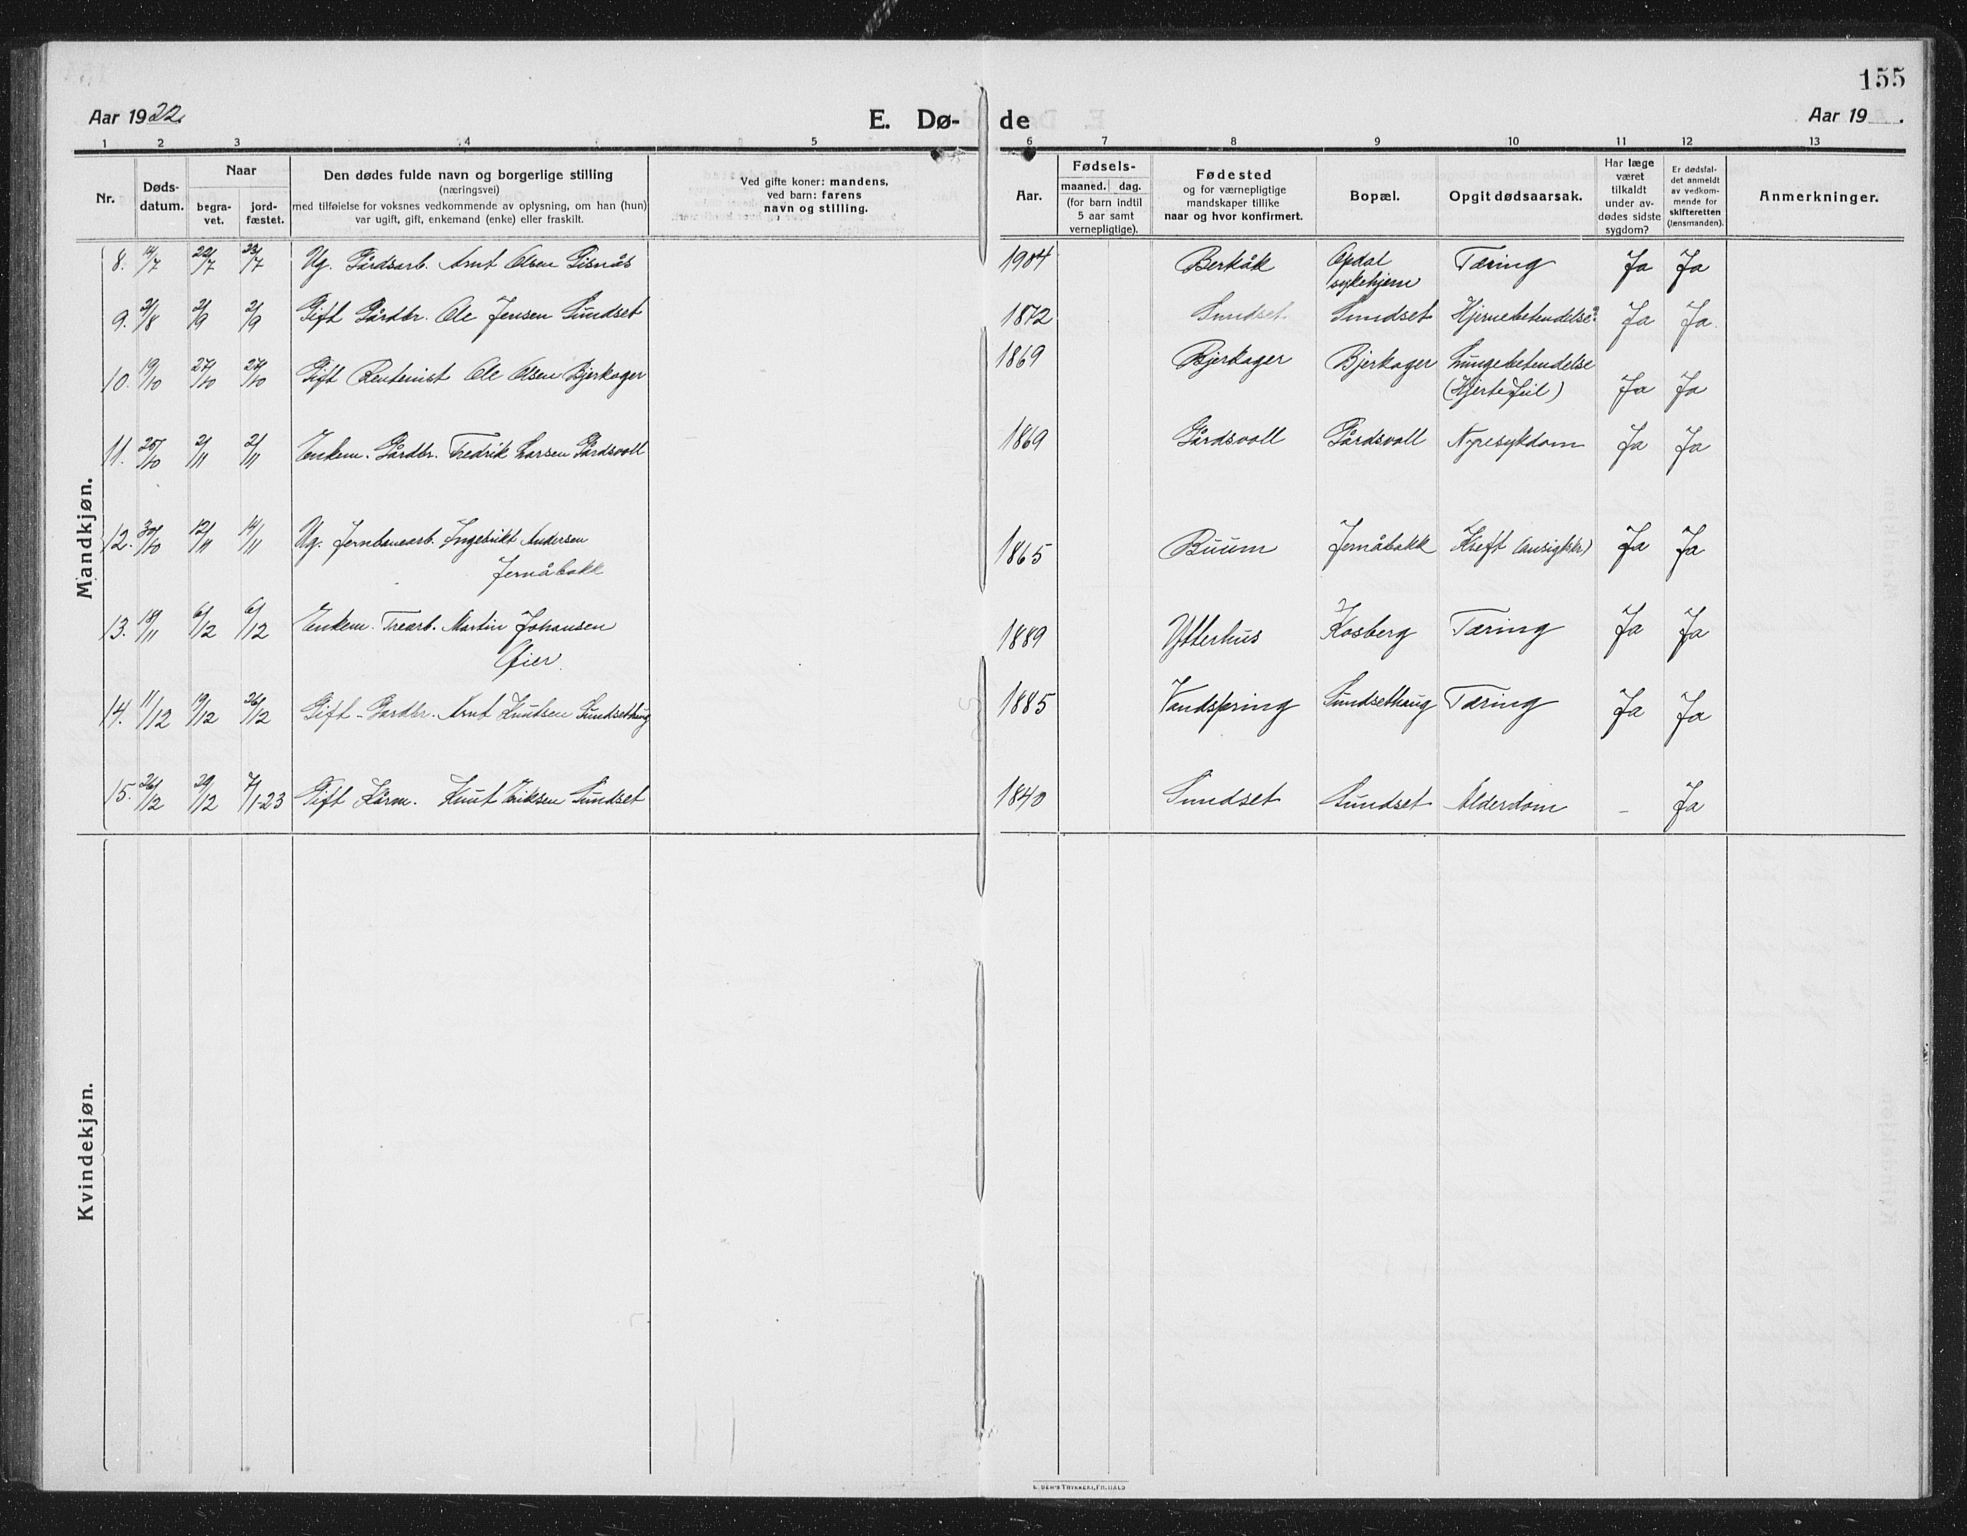 155
Aar 1922.
E. Dø-
de
Aar 19 .
1 2 3 4 5 6 7 8 9 10 11 12 13
Nr.
Døds-
datum.
Naar
begra-
vet.
jord-
fæstet.
Den dødes fulde navn og borgerlige stilling
(næringsvei)
med tilføielse for voksnes vedkommende av oplysning, om han (hun)
var ugift, gift, enkemand (enke) eller fraskilt.
Ved gifte koner: mandens,
ved barn: farens
navn og stilling.
Aar.
Fødsels-
maaned. dag.
(for barn indtil
5 aar samt
vernepligtige).
Fødested
og for værnepligtige
mandskaper tillike
naar og hvor konfirmert.
Bopæl.
Opgit dødsaarsak.
Har læge
været
tilkaldt
under av-
dødes sidste
sygdom?
Er dødsfal-
det anmeldt
av vedkom-
mende for
skifteretten
(lensmanden).
Anmerkninger.
Mandkjøn.
8. 14/7 22/7 23/7 Ug. Gårdsarb. Arnt Olsen Gisnås 1904 Berkåk Opdal Tæring Ja Ja
sykehjem
9. 21/8 2/9 2/9 Gift Gårdbr. Ole Jensen Sundset 1872 Sundset Sundset Hjernebetendelse? Ja Ja
10. 19/10 27/10 27/10 Gift Rentenist Ole Olsen Bjerkager 1869 Bjerkager Bjerkager Lungebetendelse
(Hjertefeil) Ja Ja
11. 25/10 2/11 2/11 Enkem. Gårdbr. Fredrik Larsen Gårdsvoll 1869 Gårdsvoll Gårdsvoll Nyresykdom Ja Ja
12. 30/10 12/11 14/11 Ug. Jernbanearb. Ingebrikt Andersen 1865 Buum Jernåbakk Kreft Ja Ja
Jernåbakk
13. 18/11 6/12 6/12 Enkem. Trearb. Martin Johansen 1889 Ytterhus Kosberg Tæring Ja Ja
Øier.
14. 11/12 19/12 26/12 Gift - Gardbr. Arnt Knutsen Sundsethaug 1885 Vandspring Sundsethaug Tæring Ja Ja
15. 26/12 29/12 7/1-23 Gift Kårm. Knut Eriksen Sundset 1840 Sundset Sundset Alderdom - Ja
Kvindekjøn.